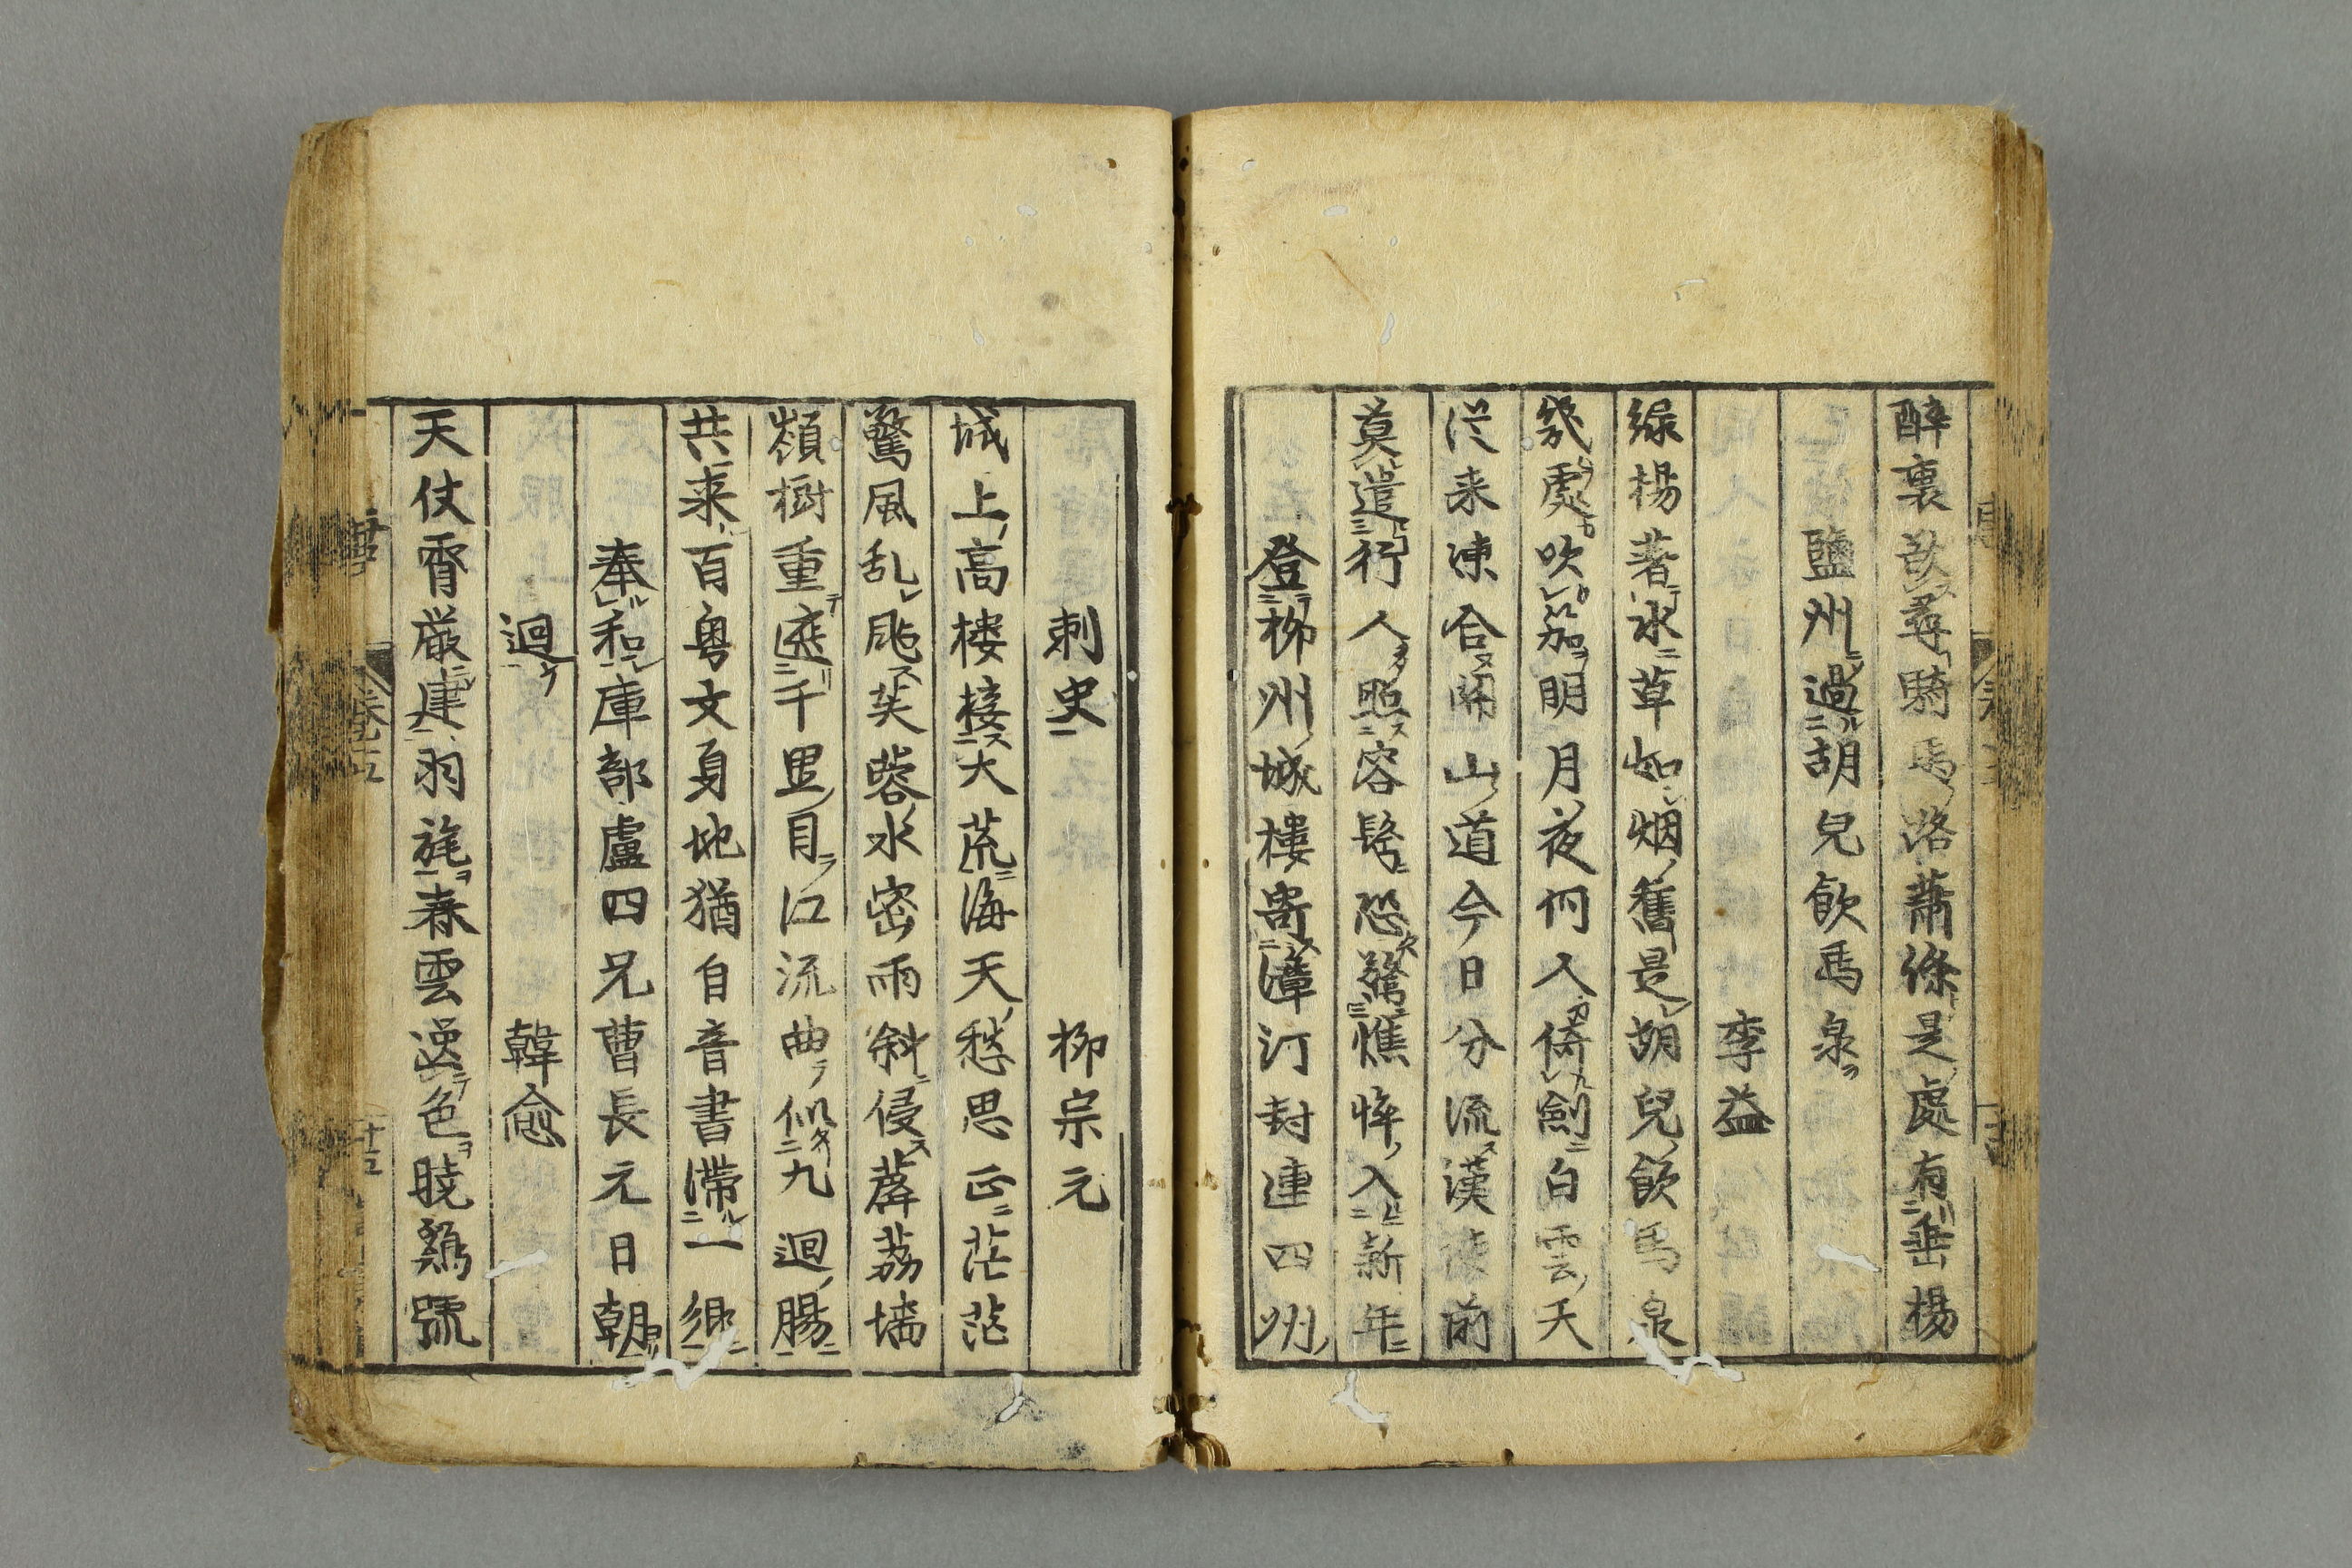 醉裏欲尋騎馬路蕭條是處有垂楊
鹽州過胡兒飲馬泉
李益
綠楊著水草如烟舊是胡兒飲馬泉
幾處吹笳明月夜何人倚劍白雲天
従来凍合関山道今日分流漢使前
莫遣行人照容髩恐驚憔悴入新年
登柳州城樓寄漳汀封連四州
刺史　柳宗元
城上高楼接大荒海天愁思正茫茫
驚風乱颭芙蓉水密雨斜侵薜荔墻
嶺樹重遮千里目江流曲似九迴腸
共来百粤文身地猶自音書滯一鄉
奉和庫部盧四兄曹長元日朝
迴　韓愈
天仗霄嚴建羽旄春雲送色曉鷄號